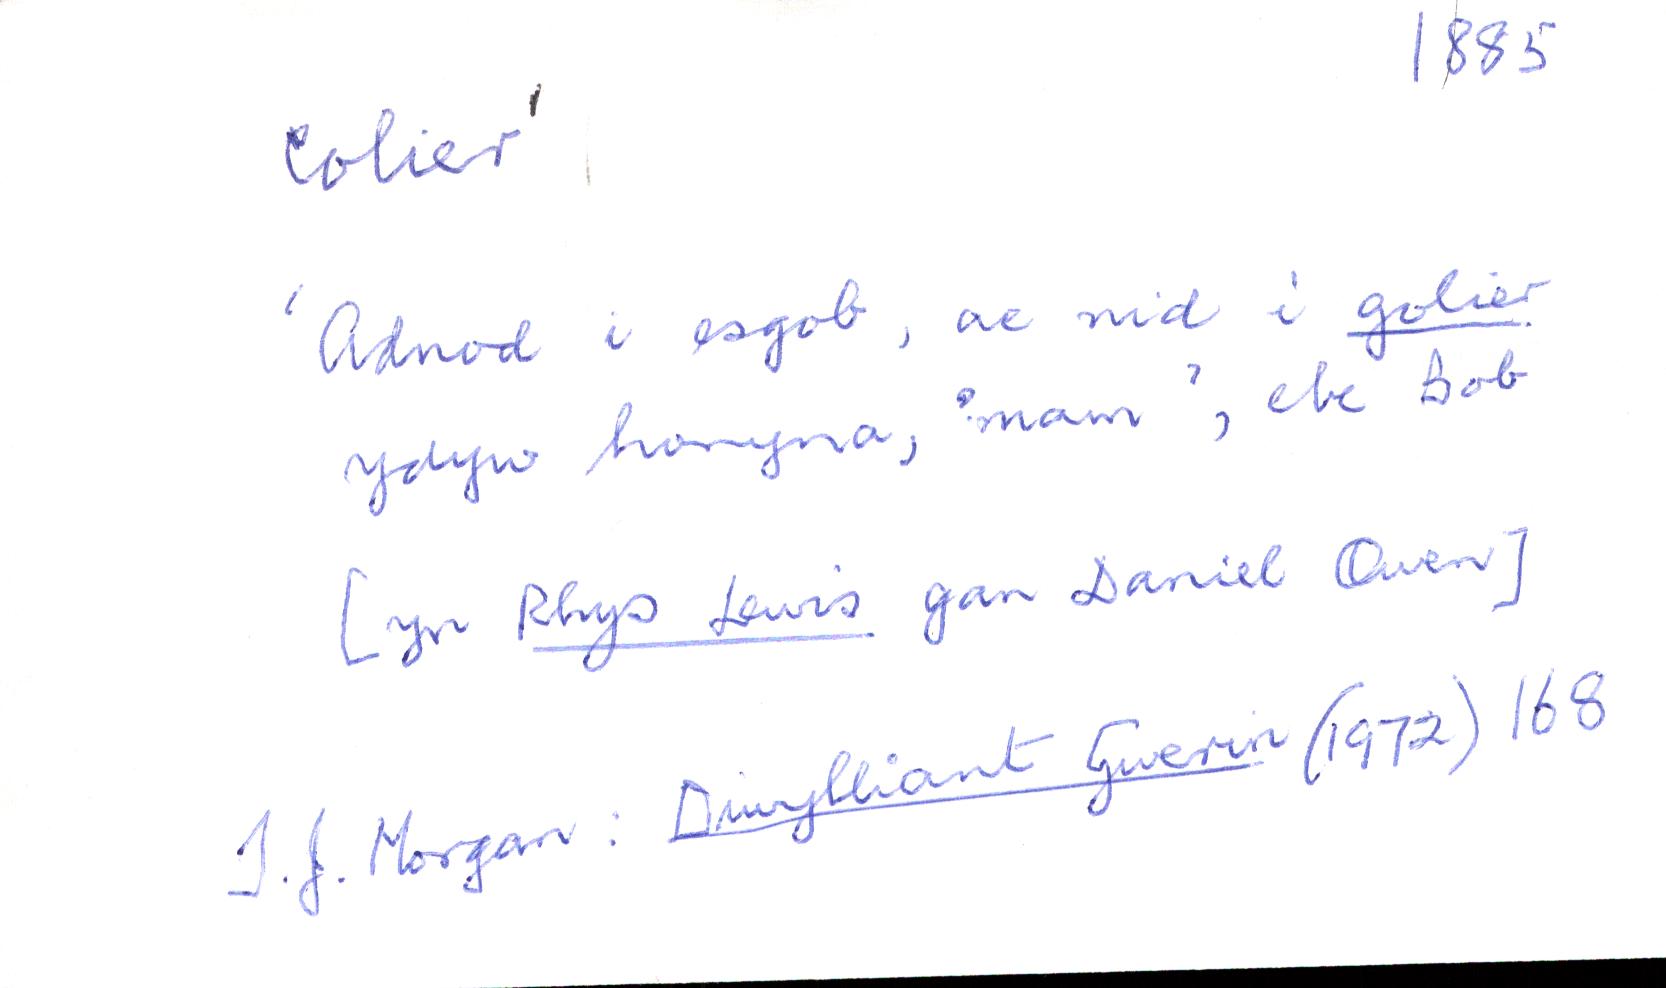 1885
colier'
'Adnod i esgob, ac nid i golier
ydyw honyna, 'mam', ebe Bob
[yn Rhys Lewis gan Daniel Owen]
T.J. Morgan: Diwylliant Gwerin (1972) 168